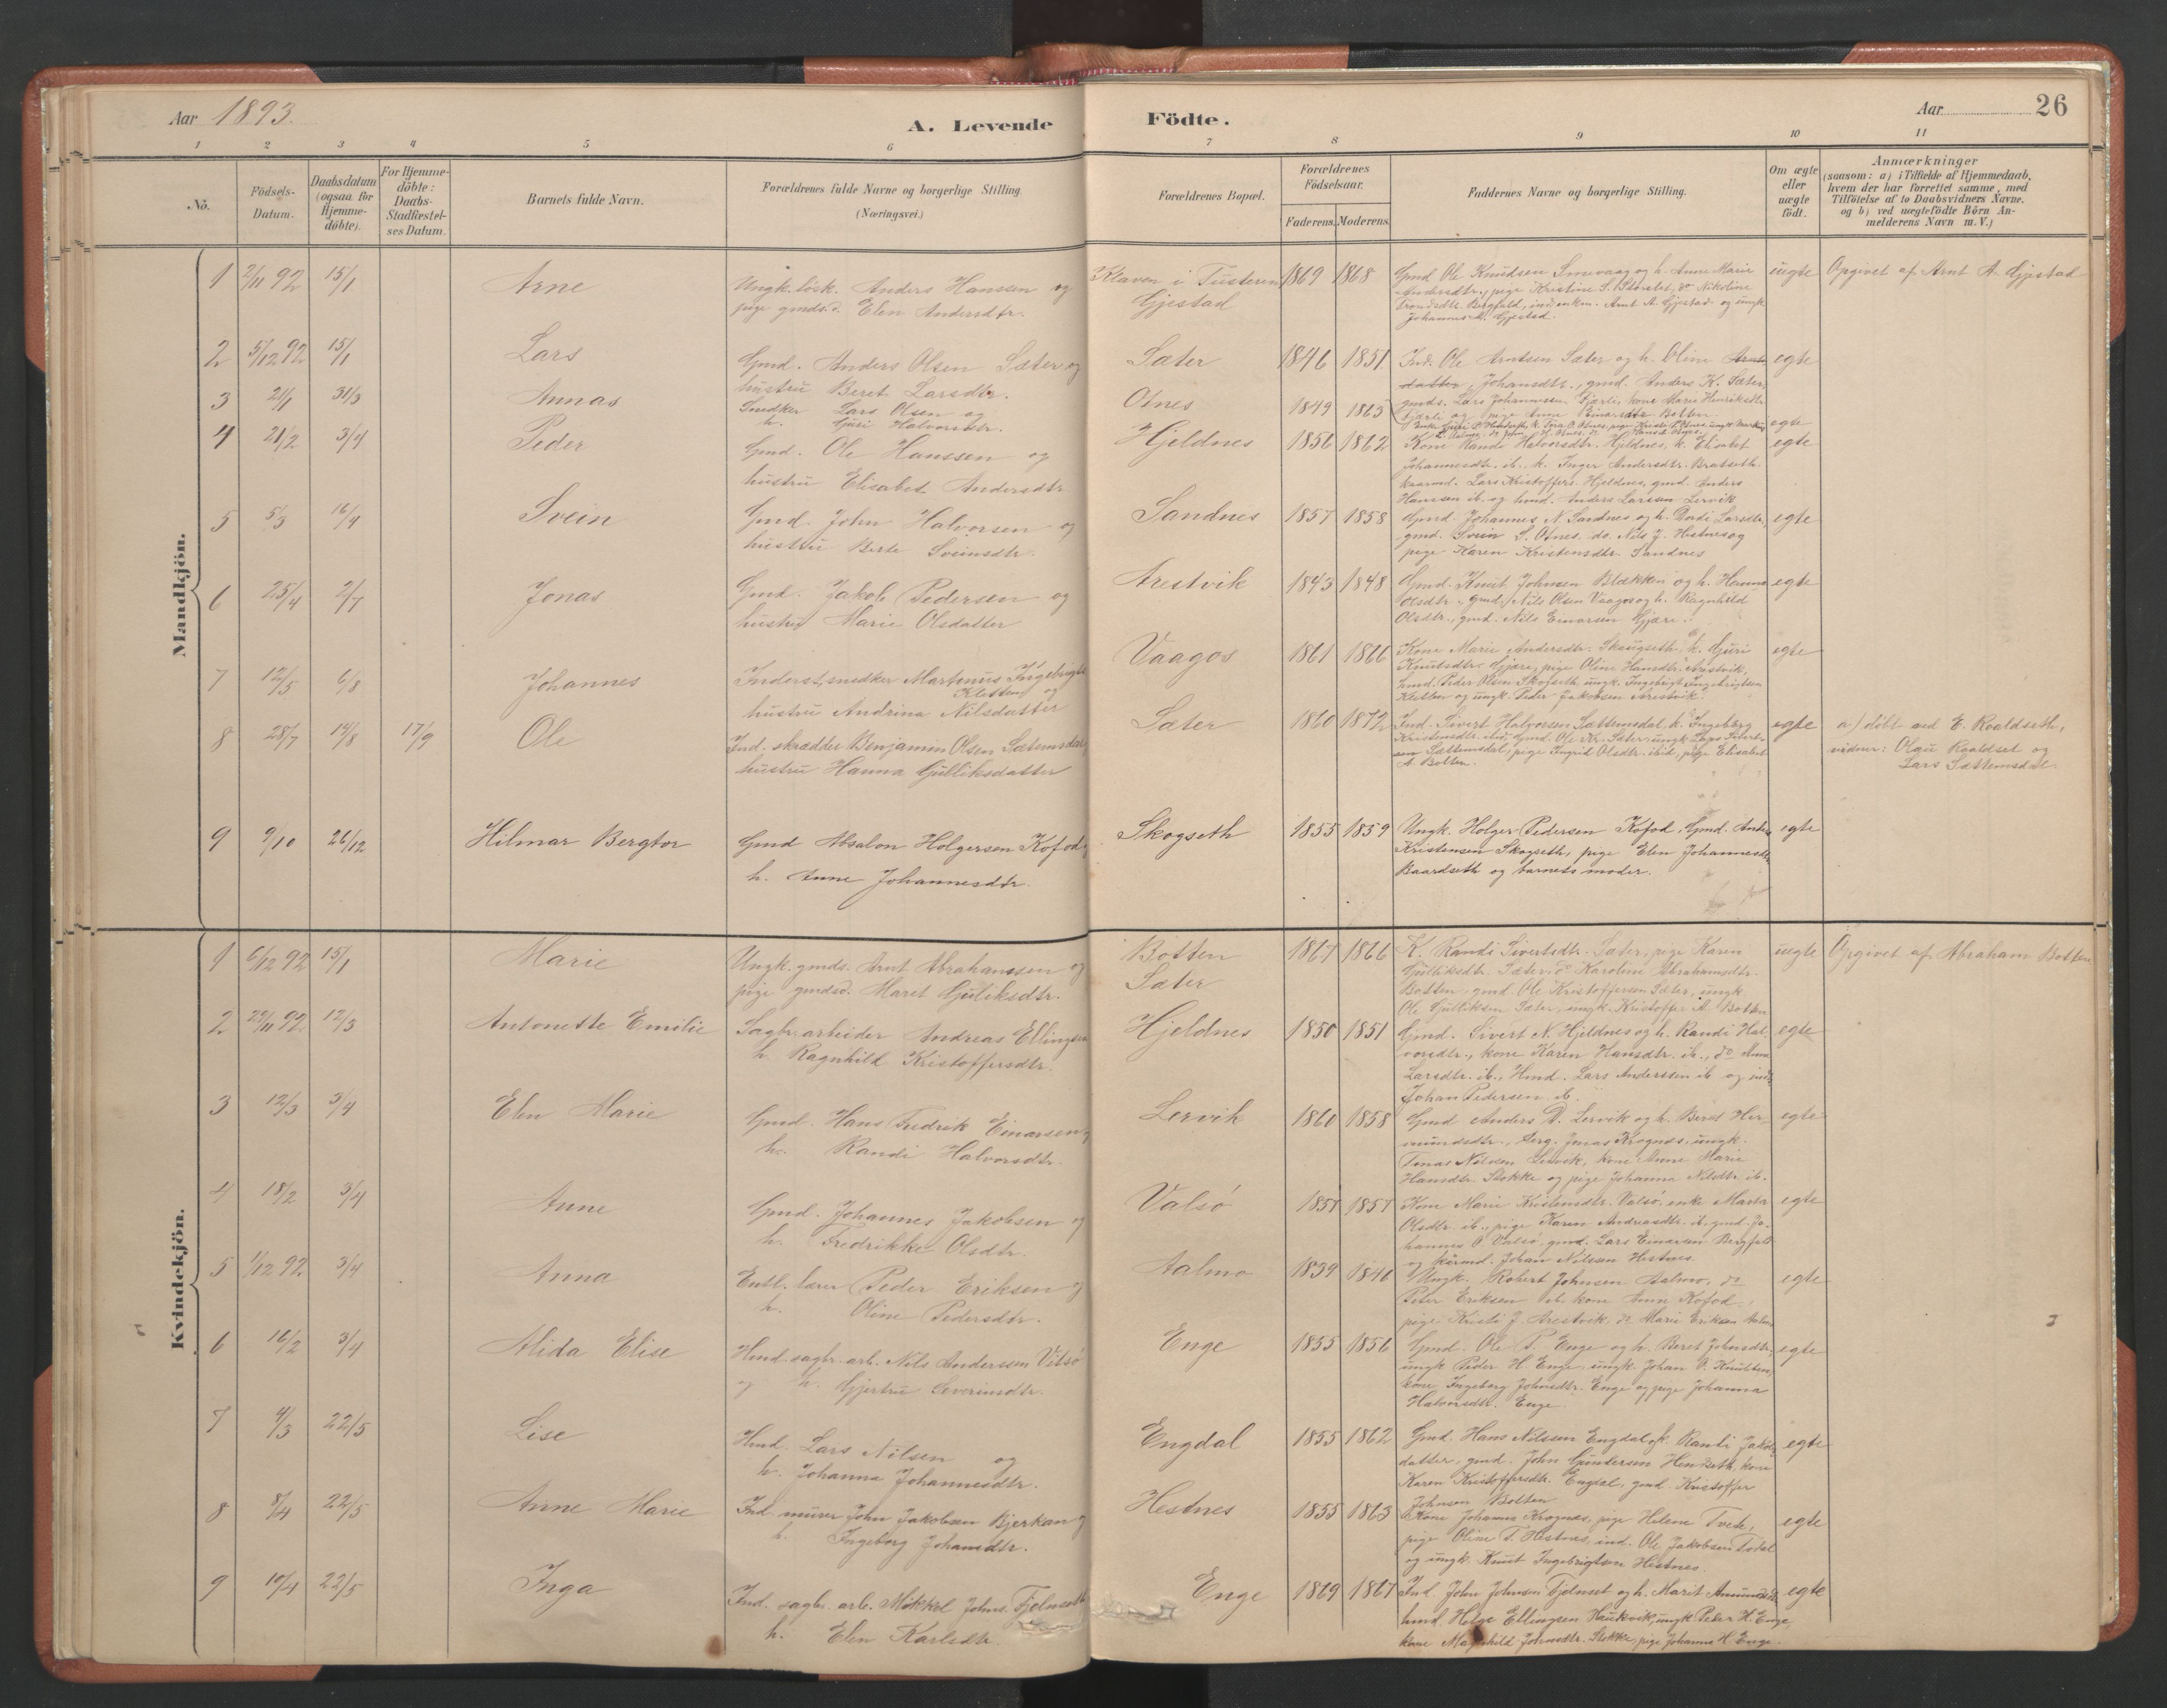 Aar 1893.
A. Levende Födte.
Aar 26
1 2 3 4 5 6 7 8 9 10 11
No.
Födsels-Datum.
Daabsdatum (ogsaa for Hjemme-döbte).
For Hjemme-döbte: Daabs-Stadfæstel-ses Datum.
Barnets fulde Navn.
Forældrenes fulde Navne og borgerlige Stilling. (Næringsvei.)
Forældrenes Bopæl.
Forældrenes Födselsaar.
Faderens. Moderens.
Faddernes Navne og borgerlige Stilling.
Om ægte eller uægte födt.
Anmærkninger (saasom: a) i Tilfælde af Hjemmedaab, hvem der har forrettet samme, med Tilföielse af to Daabsvidners Navne, og b) ved uægtefödte Börn An-melderens Navn m. V.)
Mandkjön.
1 2/11 92 15/1 Arne
Ungk. lösk. Anders Hanssen og
pige gmds.d. Elen Andersdtr.
Klaven i Tusteren
Gjestad
1869 1868
Gmd. Ole Knudsen og h. Anne Marie
Andersdtr., pige Kristine S. do Nikoline
Trondsdtr. Bergfald, ind. enkm. Arnt A. Gjestad og ungk.
Johannes Gjestad.
uegte Opgivet af Arnt A. Gjestad
2 5/12 92 15/1 Lars
Gmd. Anders Olsen Sæter og
hustru Beret Larsdtr.
Sæter 1846 1851
Ind. Ole Arntsen Sæter og h. Oline Arnts
datter Johansdtr., gmd. Anders K. Sæter,
gmds. Lars Johannessen Fjærli, kone Marie Henriksdtr.
Fjærli og pige Anne Einarsdtr. Botten.
egte
3 21/1 31/3 Annas
Snedker Lars Olsen og
h. Guri Halvorsdtr.
Otnes 1849 1863
egte
4 21/2 3/4 Peder
Gmd. Ole Hanssen og
hustru Elisabet Andersdtr.
Hjeldnes 1856 1862
Kone Randi Halvorsdtr. Hjeldnes, k. Elisabet
Johannesdtr. ib., k. Inger Andersdtr. Bratseth
kaarmd. Lars Kristoffers. Hjeldnes, gmd. Anders
Hanssen ib. og hmd. Anders Larsen Lervik
egte
5 5/3 16/4 Svein
Gmd. John Halvorsen og
hustru Berte Sveinsdtr.
Sandnes 1857 1858
Gmd. Johannes N. Sandnes og h. Dordi Larsdtr.,
gmd. Svein S. Otnes, do. Nils J. Hestnes og
pige Karen Kristensdtr. Sandnes
egte
6 25/4 2/7 Jonas
Gmd. Jakob Pedersen og
hustru Marie Olsdatter
Arestvik 1843 1848
Gmd. Knut Johnsen Blækken og h. Hanna
Olsdtr., gmd. Nils Olsen Vaagos og h. Ragnhild
Olsdtr., gmd. Nils Einarsen Gjære.
egte
7 12/5 6/8 Johannes
Inderst, snedker Martinus Ingebrigts.
Kletten og
hustru Andrina Nilsdatter
Vaagos 1861 1866
Kone Marie Andersdtr. Skaugseth, k. Guri
Knutsdtr. Gjære, pige Oline Hansdtr. Arestvik,
hmd. Peder Olsen Skogseth, ungk. Ingebrigt Ingebrigtsen
Kletten og ungk. Peder Jakobsen Arestvik.
egte
8 28/7 14/8 17/9 Ole
Ind. skrædder Benjamin Olsen Sætemsdal
hustru Hanna Gulliksdatter
Sæter 1860 1872
Ind. Sivert Halvorsen Sættemsdal, k. Ingeborg
Kristensdtr. ibid, Gmd. Ole Kr. Sæter, ungk. Lars Sivert-
sen Sættemsdal, pige Ingrid Olsdtr. ibid, pige Elisabet
A. Botten.
egte
a.) döbt ved E. Roaldseth,
vidner: Olau Roaldset og
Lars Sættemsdal.
9 9/10 26/12 Hilmar Bergtor
Gmd Absalon Holgersen Kofod og
h. Anne Johannesdtr.
Skogseth 1855 1859
Ungk. Holger Pedersen Kofod, Gmd. Anders
Kristensen Skogseth, pige Elen Johannesdtr.
Baardseth og barnets moder.
egte
Kvindekjön.
1 6/12 92 15/1 Marie
Ungk. gmds. Arnt Abrahamssen og
pige gmdsd. Maret Guliksdtr.
Botten
Sæter
1867 1866
K. Randi Sivertsdtr. Sæter, pige Karen
Gulliksdtr. Sæter, do Karoline Abrahamsdtr.
Botten, gmd. Ole Kristoffersen Sæter, ungk.
Ole Gulliksen Sæter, ungk. Kristoffer A. Botten
uegte Opgivet af Abraham Botten
2 29/11 92 12/3 Antonette Emilie
Sagbr. arbeider Andreas Ellingsen
h. Ragnhild Kristoffersdtr.
Hjeldnes 1850 1851
Gmd. Sivert N. Hjeldnes og h. Randi Hal-
vorsdtr., kone Karen Hansdtr. ib., do Anna
Larsdtr. ib., Hmd. Lars Anderssen ib. og ind.
Johan Pedersen ib.
egte
3 12/3 3/4 Elen Marie
Gmd. Hans Fredrik Einarsen og
h. Randi Halvorsdtr.
Lervik 1860 1858
Gmd Anders D. Lervik og h. Beret Her-
mundsdtr., Serg. Jonas Krognes, ungk.
Tomas Nilsen Lervik, kone Anne Marie
Hansdtr. Stokke og pige Johanna Nilsdtr. ib.
egte
4 18/2 3/4 Anne
Gmd. Johannes Jakobsen og
h. Fredrikke Olsdtr.
Valsö 1857 1857
Kone Marie Kristensdtr. Valsö, enke Marta
Olsdtr. ib., pige Karen Andreasdtr. ib., gmd. Jo-
hannes O. Valsö, gmd. Lars Einarsen Bergfald
og kårmd. Johan Nilsen Hestnes
egte
5 1/12 92 3/4 Anna
Entl. lærer Peder Eriksen og
h. Oline Pedersdtr.
Aalmo 1839 1846
Ungk. Robert Johnsen Aalmo, do
Peter Eriksen ib., kone Anne Kofod,
pige Kristi J. Arestvik, do Marie Eriksen Aalmo
egte
6 16/2 3/4 Alida Elise
Hmd. sagbr. arb. Nils Anderssen Vitsö
og h. Gjertru Severinsdtr.
Enge 1855 1856
Gmd. Ole P. Enge og h. Beret Johnsdtr.,
ungk. Peder H. Enge, ungk. Johan O. Knutsen,
kone Ingeborg Johnsdtr. Enge og pige Johanna
Halvorsdtr. Enge
egte
7 4/3 22/5 Lise
Hmd. Lars Nilsen og
h. Johanna Johannesdtr.
Engdal 1855 1862
Gmd. Hans Nilssen Engdal, k. Randi Jakobs-
datter, gmd. John Gundersen Hendseth, kone
Karen Kristoffersdtr. Engdal, gmd. Kristoffer
Johnsen Botten
egte
8 8/4 22/5 Anne Marie
Ind. murer John Jakobsen Bjerkan og
h. Ingeborg Johansdtr.
Hestnes 1855 1863
Kone Johanna Krognes, pige Helene Tvete,
pige Oline T. Hestnes, ind. Ole Jakobsen Todal
og ungk. Knut Ingebrigtsen Hestnes.
egte
9 19/4 22/5 Inga
Ind. sagbr. arb. Mikkel Johns. Fjelnseth
h. Elen Karlsdtr.
Enge 1869 1867
Ind. John Johnsen Fjelnset og h. Marit Amundsdtr.
hmd. Helge Ellingsen Haukvik, ungk. Peder H. Enge,
kone Magnhild Johnsdtr. Stokke, pige Johanna H. Enge.
egte